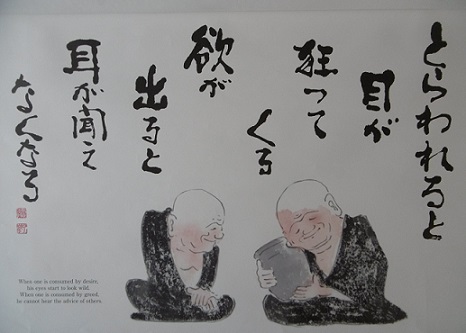 とらわれると
目が
狂って
くる
欲が
出ると
耳が聞え
なくなる
When one is consumed by desire,
his eyes start to look wild.
When one is consumed by greed,
he cannot hear the advice of others.